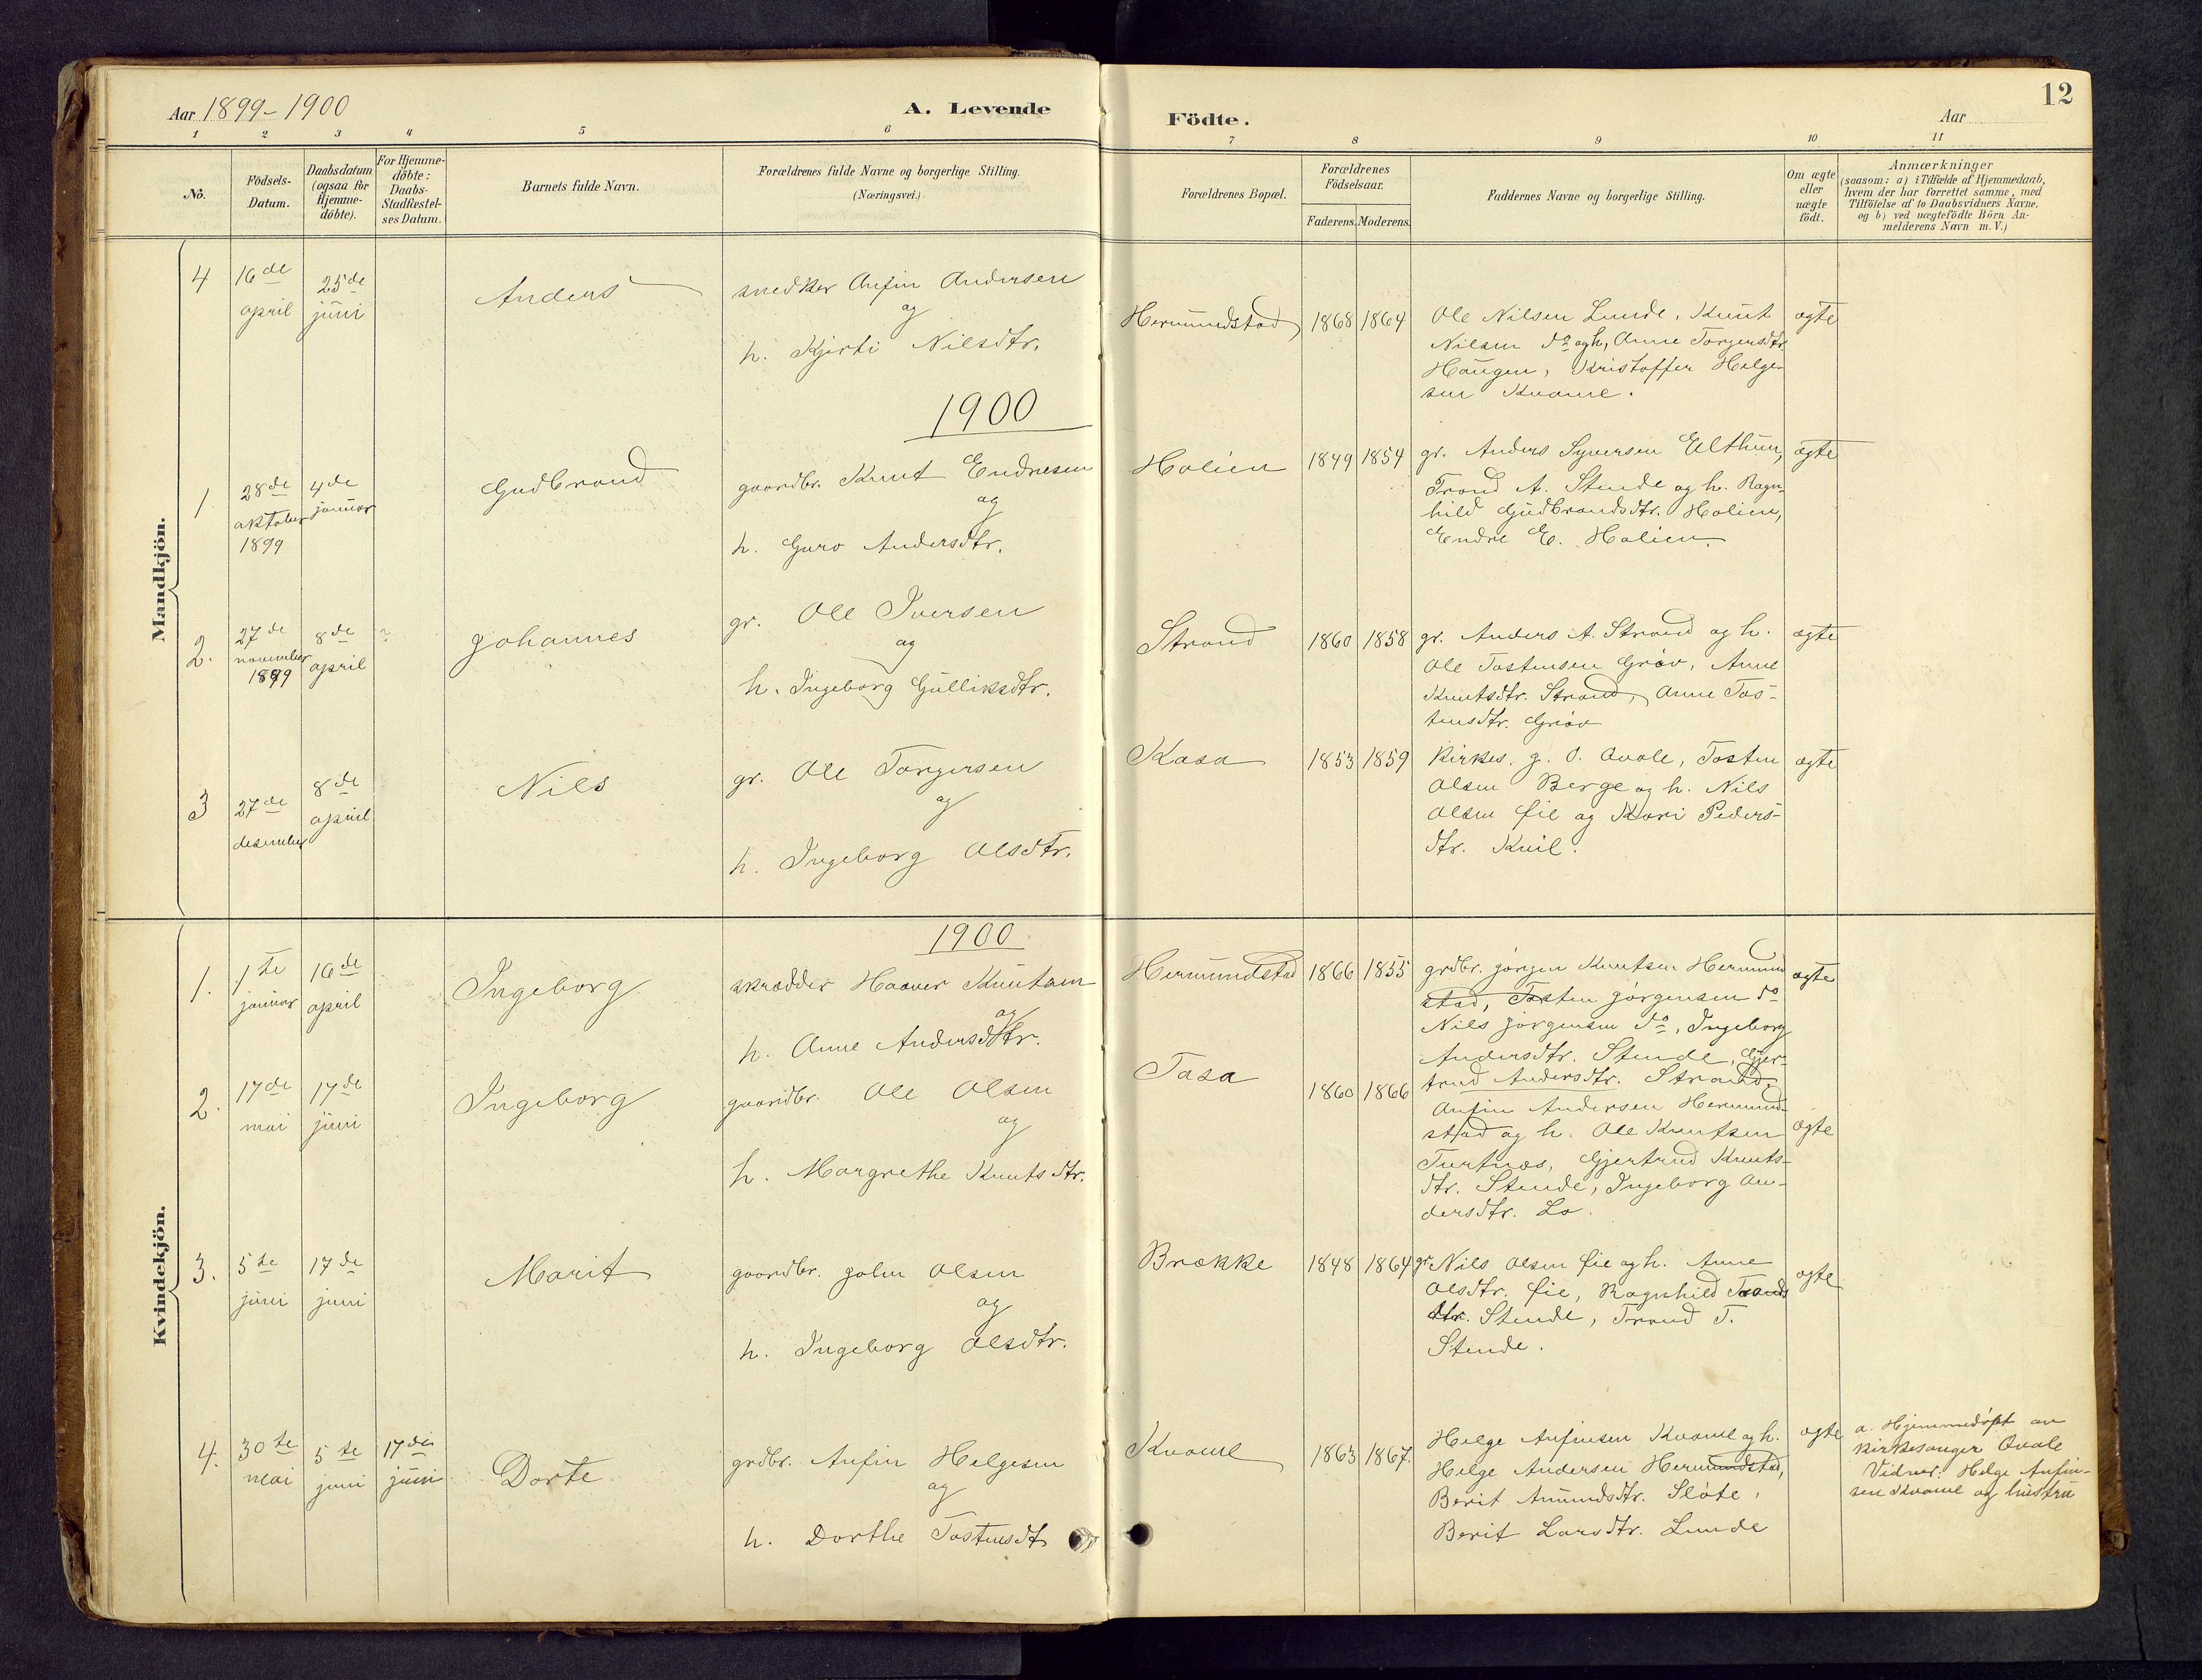 Aar 1899-1900
A. Levende
Födte.
Aar
12
1 2 3 4 5 6 7 8 9 10 11
No.
Födsels-
Datum.
Daabsdatum
(ogsaa for
Hjemme-
döbte).
For Hjemme-
döbte:
Daabs-
Stadfæstel-
ses Datum.
Barnets fulde Navn.
Forældrenes fulde Navne og borgerlige Stilling.
(Næringsvei.)
Forældrenes Bopæl.
Forældrenes
Födselsaar.
Faderens. Moderens.
Faddernes Navne og borgerlige Stilling.
Om ægte
eller
uægte
födt.
Anmærkninger
(saasom: a) i Tilfælde af Hjemmedaab,
hvem der har forrettet samme, med
Tilföielse af to Daabsvidners Navne,
og b) ved uægtefödte Börn An-
melderens Navn m. V.)
Mandkjön.
4
16de
april
25de
juni
Anders
snedker Anfin Andersen
og
h. Kjersti Nilsdtr.
Hermundstad
1868 1864
Ole Nilsen Lunde, Knut
Nilsen do og h, Anne Torgersdtr
Haugen, Kristoffer Helge-
sen Kvame.
ægte
1900
1
28de
oktober
1899
4de
januar
Gudbrand
gaardbr. Knut Endresen
og
h. Guro Andersdtr.
Holien
1849 1854
gr. Anders Syversen Elthun,
Trond A. Stende og h. Ragn-
hild Gudbrandsdtr. Holien,
Endre E. Holien.
ægte
2.
27de
november
1899
8de
april
Johannes
gr. Ole Iversen
og
h. Ingeborg Gulliksdtr.
Strand
1860 1858
gr. Anders A. Strand og h.
Ole Tostensen Grøv, Anne
Knutsdtr. Strand, Anne Tos-
tensdtr. Grøv
ægte
3
27de
desember
8de
april
Nils
gr. Ole Torgersen
og
h. Ingeborg Olsdtr.
Kasa
1853 1859
kirkes. g. O. Qvale, Tosten
Olsen Berge og h. Nils
Olsen Øie og Kari Peders-
dtr. Kvil.
ægte
Kvindekjön.
1900
1.
1te
januar
16de
april
Ingeborg
skrædder Haaver Knutsen
og
h. Anne Andersdtr.
Hermundstad
1866 1855
grdbr. Jørgen Knutsen Hermund
stad, Tosten Jørgensen do
Nils Jørgensen do, Ingeborg
Andersdtr. Stende, Gjer-
trud Andersdtr. Strand.
ægte
2.
17de
mai
17de
juni
Ingeborg
gaardbr. Ole Olsen
og
h. Margrethe Knutsdtr.
Tasa
1860 1866
Anfin Andersen Hermund-
stad og h. Ole Knutsen
Turtnæs, Gjertrud Knuts-
dtr. Stende, Ingeborg An-
dersdtr. Lo.
ægte
3.
5te
juni
17de
juni
Marit
gaardbr. John Olsen
og
h. Ingeborg Olsdtr.
Brække
1848 1864
gr. Nils Olsen Øie og h. Anne
Olsdtr. Øie, Ragnhild Tronds
dtr. Stende, Trond T.
Stende.
ægte
4.
30te
mai
5te
juni
17de
juni
Dorte
grdbr. Anfin Helgesen
og
h. Dorthe Tostensdt
Kvame
1863 1867.
Helge Anfinsen Kvame og h.
Helge Andersen Hermundstad,
Berit Amundsdtr. Sløte,
Berit Larsdtr. Lunde
ægte
a. Hjemmedøpt av
kirkesanger Qvale
Vidner: Helge Anfin-
sen Kvame og hustru